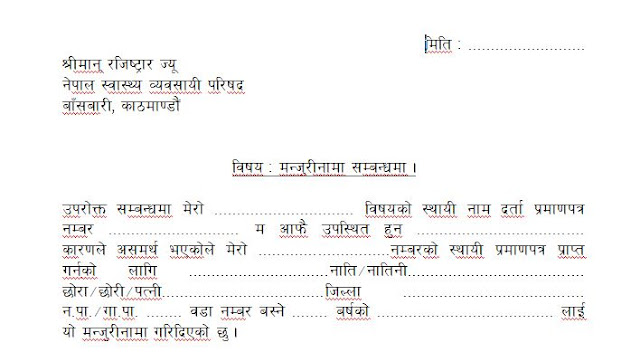 मिति : ..........................
श्रीमान् रजिष्ट्रार ज्यू
नेपाल स्वास्थ्य व्यवसायी परिषद
बाँसबारी, काठमाण्डौं
विषय : मन्जुरीनामा सम्बन्धमा ।
उपरोक्त सम्बन्धमा मेरो ............................... विषयको स्थायी नाम दर्ता प्रमाणपत्र
नम्बर ............................. म आफै उपस्थित हुन .....................................
कारणले असमर्थ भएकोले मेरो ............................. नम्बरको स्थायी प्रमाणपत्र प्राप्त
गर्नको लागि ................................नाति/नातिनी.......................................
छोरा/छोरी/पत्नी....................................जिल्ला ........................................
न.पा./गा.पा. ........ वडा नम्बर बस्ने ........ बर्षको ....................................... लाई
यो मन्जुरीनामा गरिदिएको छु ।